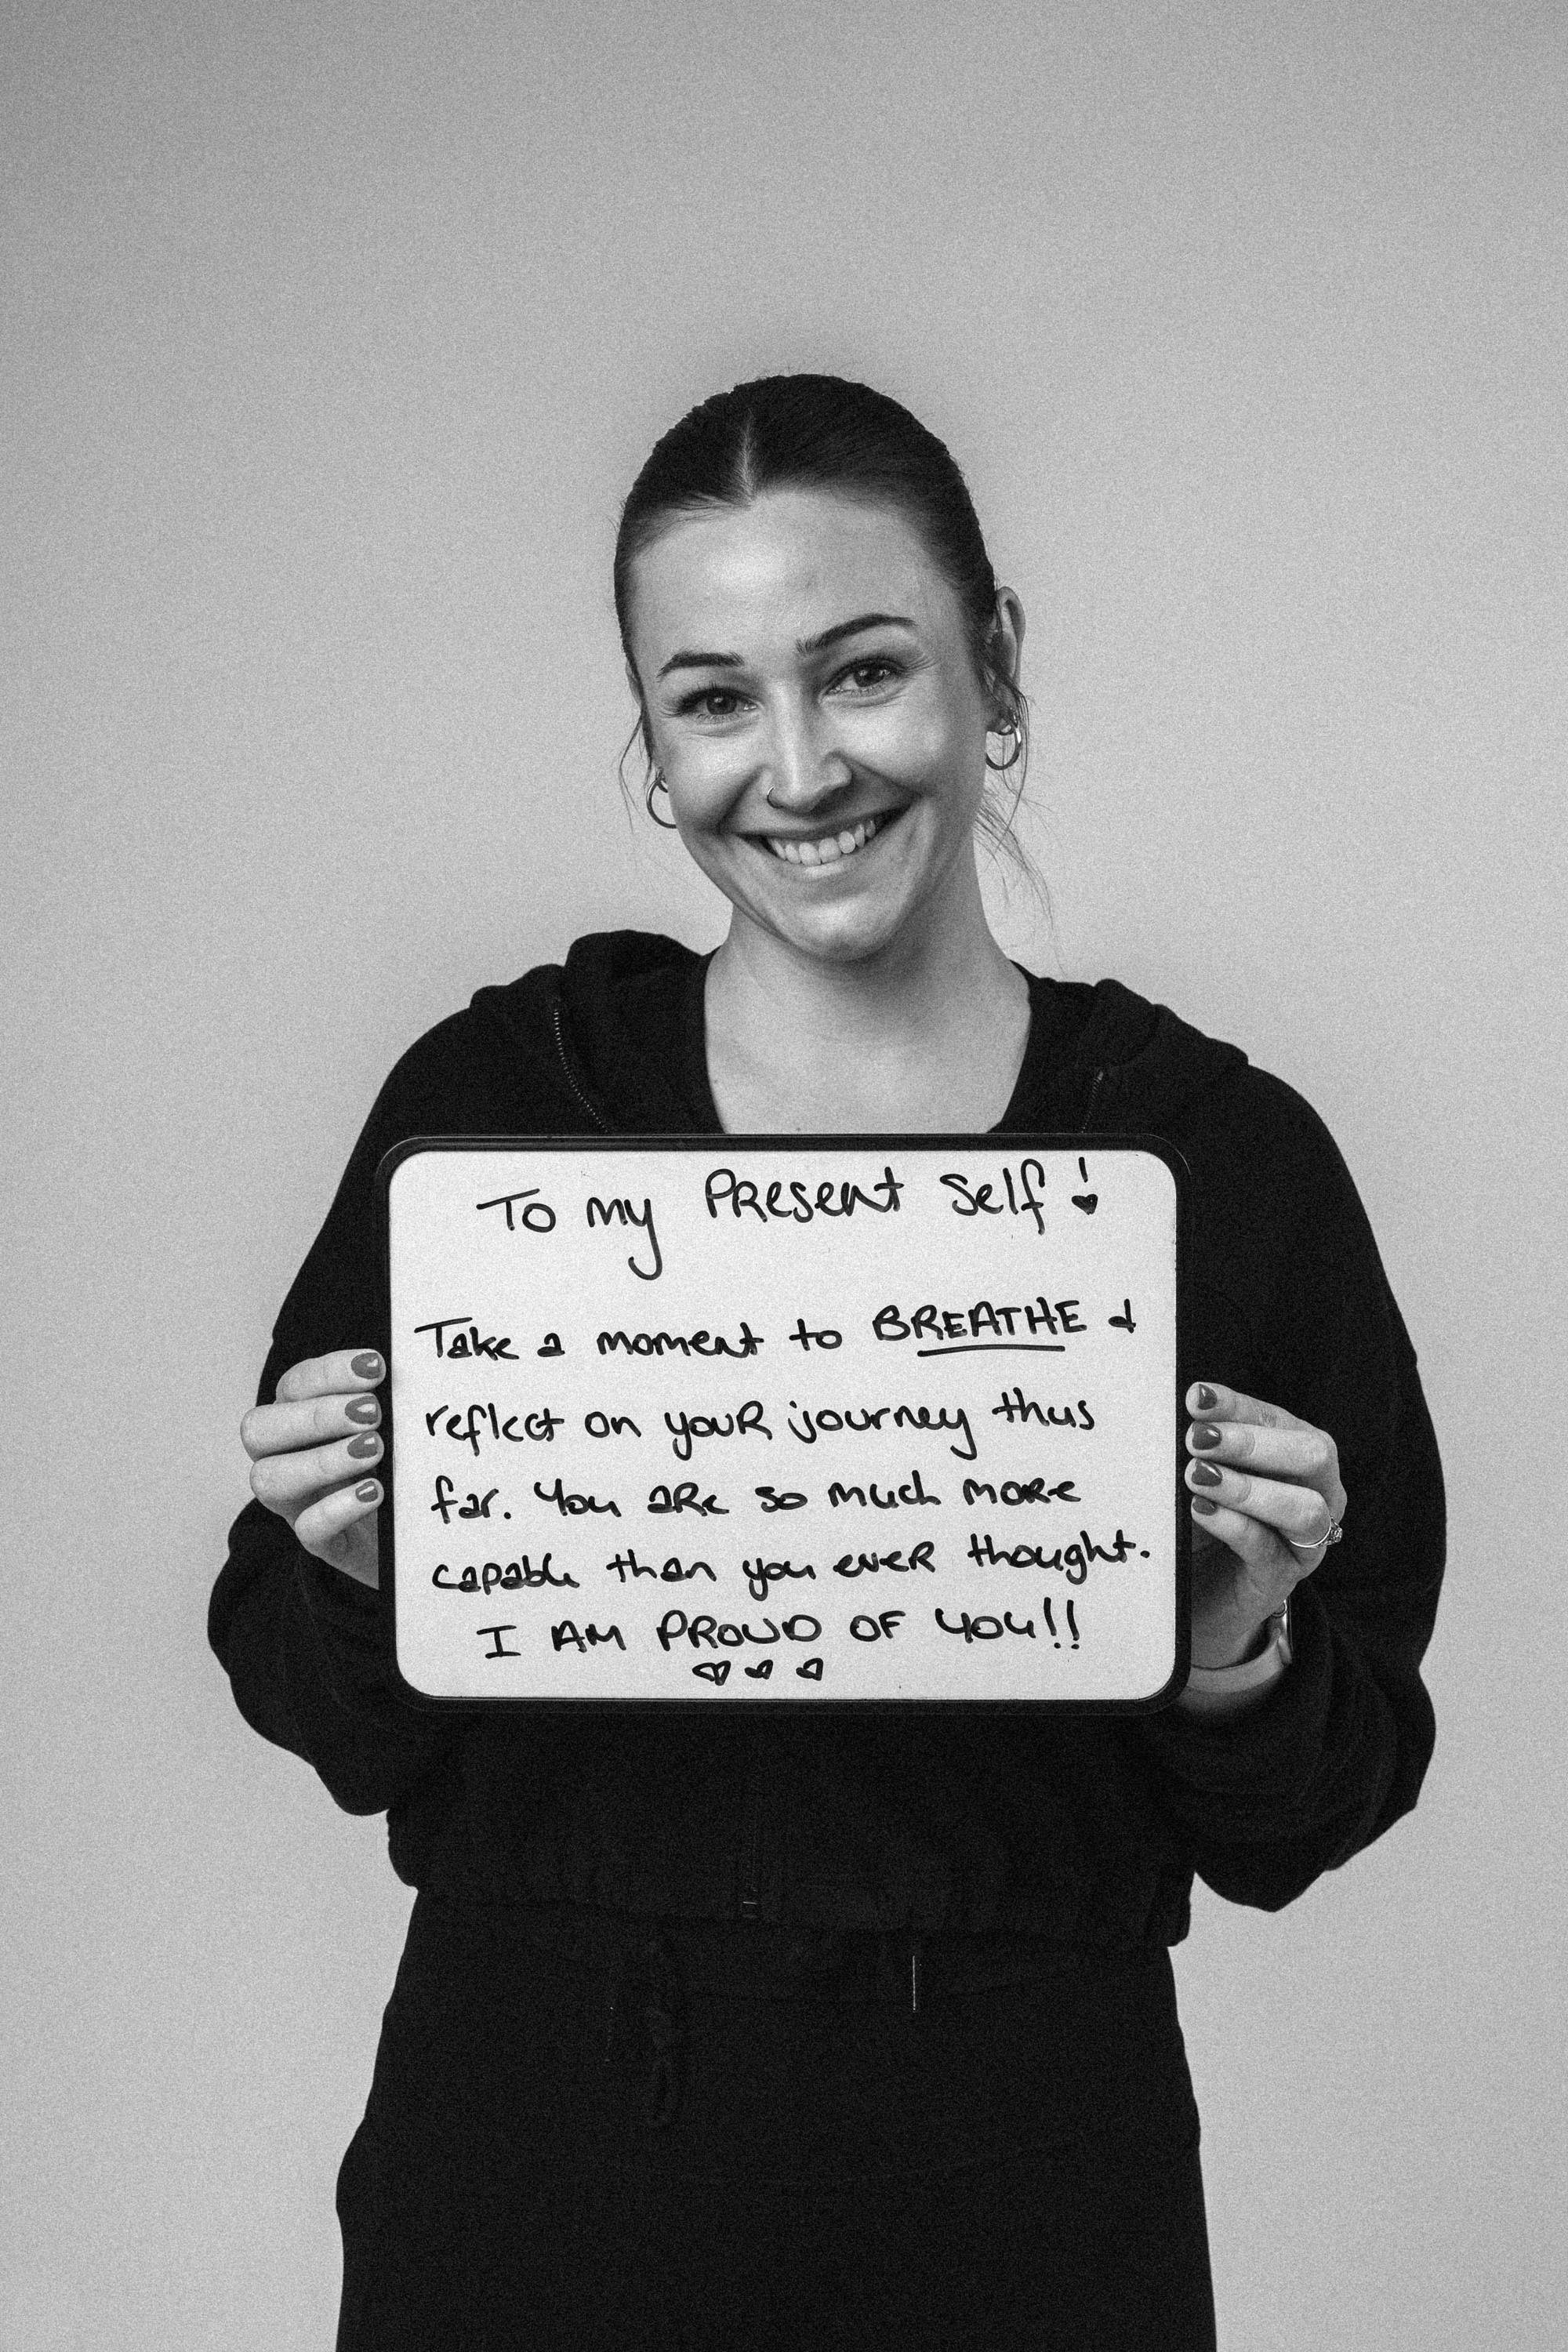 To my Present Self!
Take a moment to BREATHE &
reflect on your journey thus
far. You are so much more
capable than you ever thought.
I AM PROUD OF YOU!!
♡♡♡